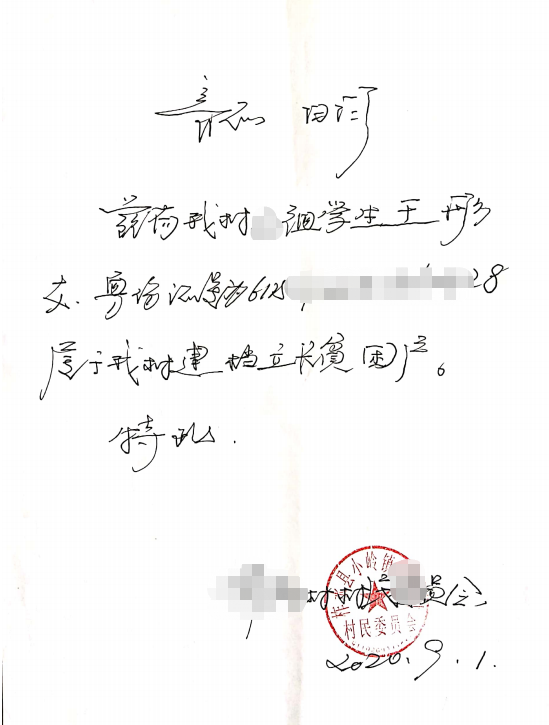 证明
兹有我村 组学生王彤
文.身份证号为6125 28
属于我村建档立卡贫困户。
特此.
村村民 员会
县小岭镇
村民委员会
2020.9.1.